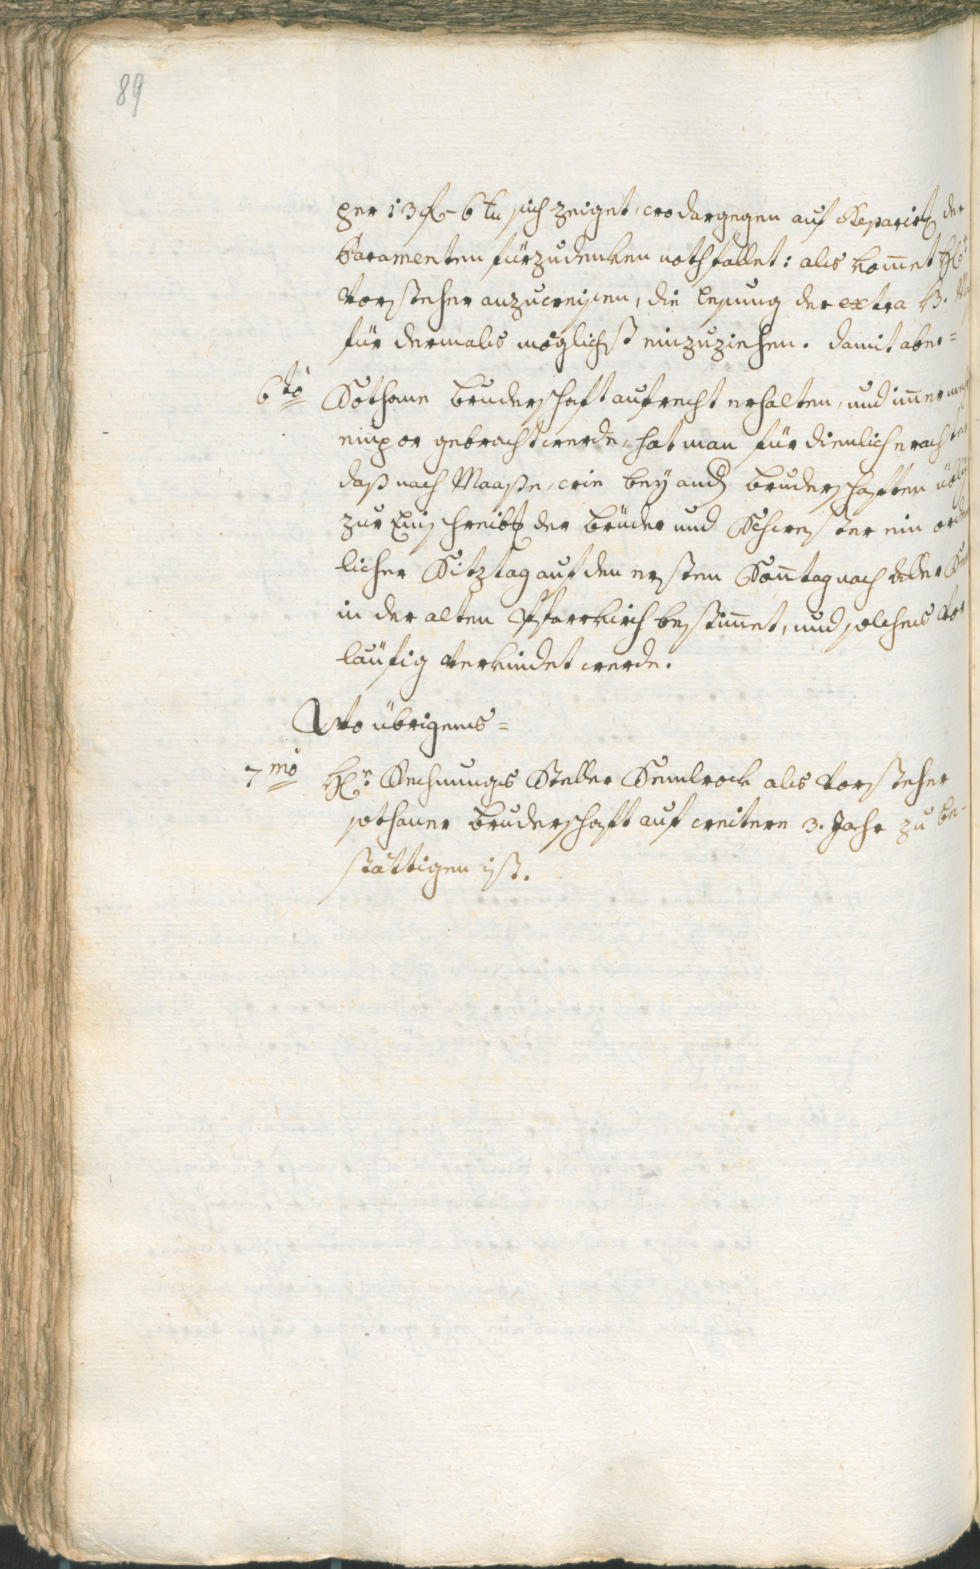 89
per 13 f - 6 kr sich zeiget, wo dargegen auf Reparirg der
Paramenten fürzudenken nothfallet: als kom̄et H:
Vorsteher anzuweisen, die Lesung der extra H.
für dermals möglichst einzuziehen. damit aber =
6to Sothane Bruderschaft aufrecht erhalten, und immer
empor gebracht werde, hat man für dienlich erachtet
daß nach Maaße, wie bey andn Bruderschaften
zur Einschreibg der Brüder und Schwester ein or
licher Sitztag auf den ersten Son̄tag nach
in der alten Pfarrkirch bestim̄et, und solches Vor
läufig Verkindet werde.
Wo übrigens =
7mo Hrn Rechnungs Steller Semlrock als Vorsteher
sothaner Bruderschaft auf weitere 3. Jahr zu be-
stättigen ist.